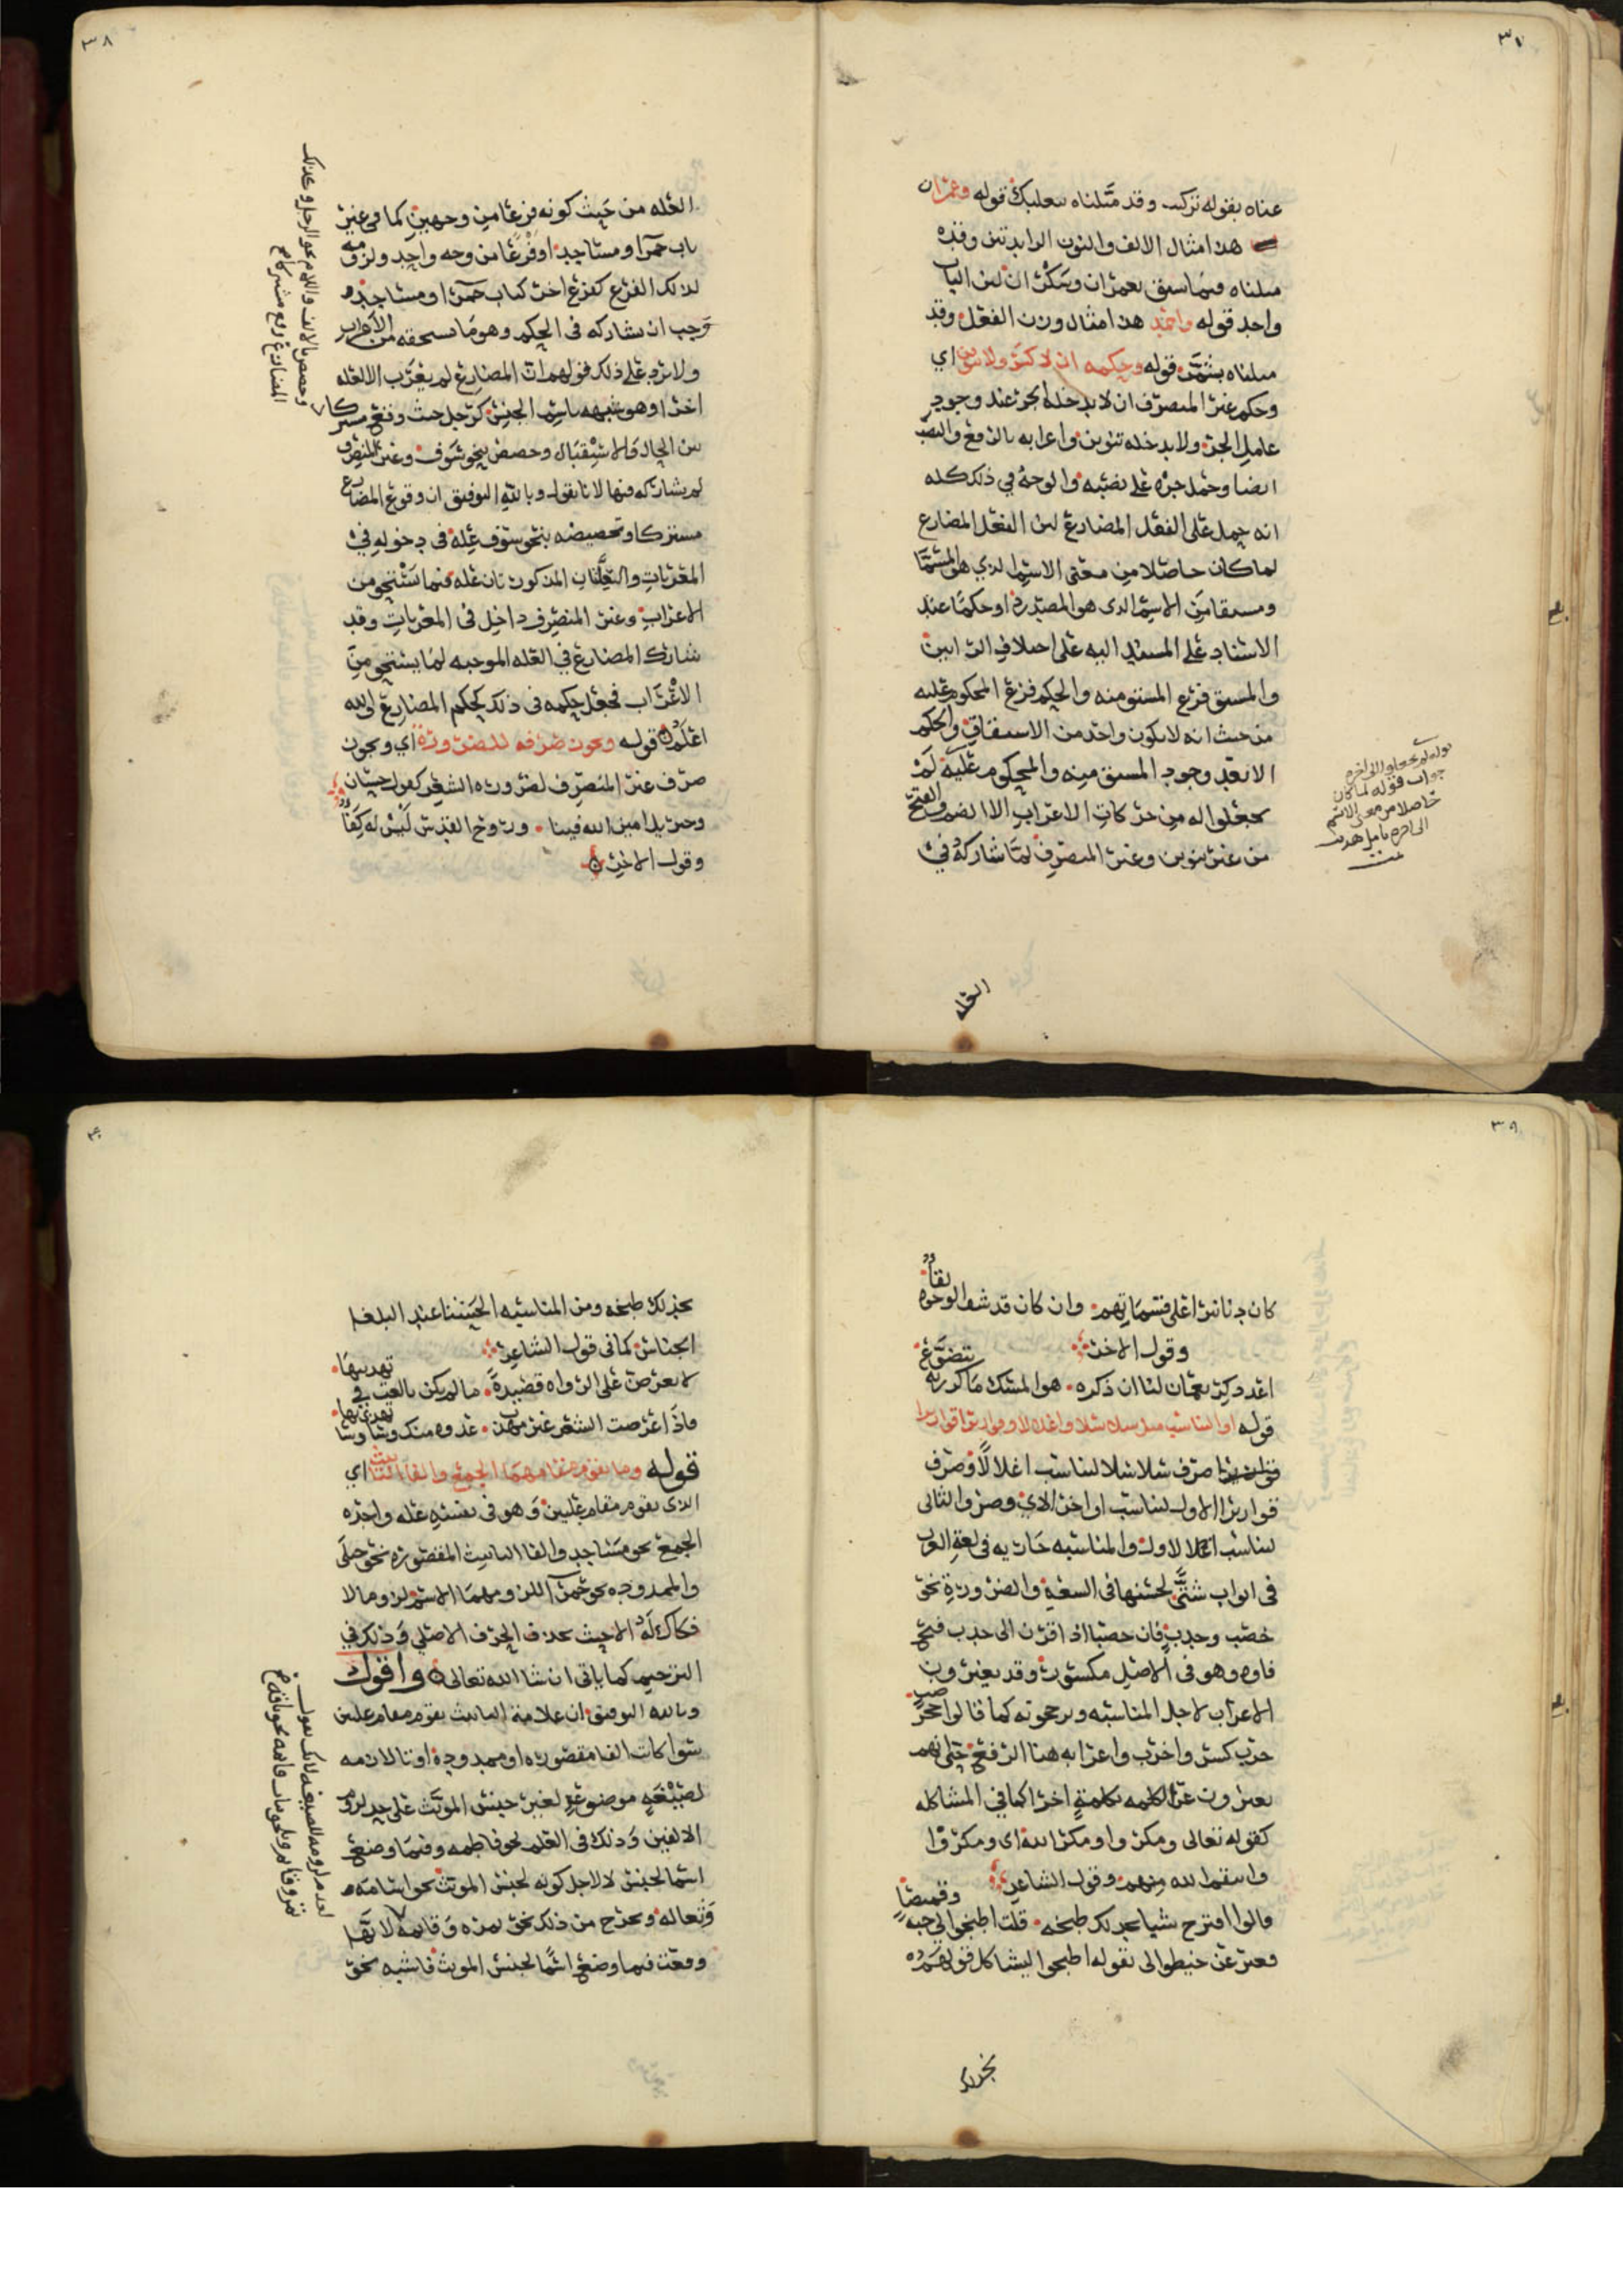 ٣٧
عناه بقوله تركيب وقد مثلناه ببعلبك قوله وعمران
هذا مثال الالف والنون الزايدتين وقده
مثلناه فيما سبق بعمران وسكران لبن الباب
واحد قوله واحمد هذا مثال وزن الفعل وقد
مثلناه بشمر قوله وحكمه ان لا كسر ولا تنوين اي
وحكم غير المنصرف ان لا يدخله الجر عند وجود
عامل الجر ولا يدخله تنوين واعرابه بالرفع والنصب
ايضا وحمل جره على نصبه والوجه في ذلك كله
انه حمل على الفعل المضارع لان الفعل المضارع
لما كان حاصلا من معنى الاسم الذي هو المسمّا
ومشتقا من الاسم الذى هو المصدر او حكما عند
الاسناد على المسند اليه على اختلاف الرايين
والمشتق فرع المشتق منه والحكم فرع المحكوم عليه
من حيث انه لا يكون واحد من الاشتقاق والحكم
الا بعد وجود المشتق منه والمحكوم عليه لم
يجعلوا له من حركات الاعراب الا الضم والفتح
من غير تنوين وغير المنصرف لما شاركه في
قوله لم يجعلوا الى اخره
جواب قوله لما كان
حاصلا من معنى الاسم
الى اخره تامل هديت
تمت
العله
٣٨
العله من حيث كونه فرعا من وجهين كما في غير
باب حمرا ومساجد او فرعا من وجه واحد ولزومه
لذلك الفرع كفرع اخر كباب حمرا ومساجد
وجب ان يشاركه في الحكم وهو ما يستحقه من الاعراب
ولا يرد على ذلك قولهم ان المضارع لم يعرب الا لعله
اخرا وهو شبهه باسم الجنس كرجل حيث وقع مشتركا
بين الحال والاستقبال وخصص بنحو سوف وغير المنصرف
لم يشاركه فيها لانا نقول وبالله التوفيق ان وقوع المضارع
مشتركا وتخصيصه بنحو سوف عله في دخوله في
المعربات والعلتان المذكورتان عله فيما يستحق من
الاعراب وغير المنصرف داخل في المعربات وقد
شارك المضارع في العله الموجبه لما يستحق من
الاعراب فجعل حكمه في ذلك كحكم المضارع والله
اعلم قوله ويجوز صرفه للضروره اي ويجوز
صرف غير المنصرف لضروره الشعر كقول حسان
وجبريل امين الله فينا وروح القدس ليس له كفاء
وقول الاخر
وخصص بالالف واللام نحو الرجل وكذلك
المضارع وقع مشتركا
٣٩
كان دنانيرا على قسماتهم وان كان قد شف الوجوه لقاء
وقول الاخر
اعد ذكر نعمان لنا ان ذكره هو المسك ما كررته يتضوع
قوله او التناسب مثل سلاسلا واغلالا وقواريرا قواريرا
صرف سلاسلا لتناسب اغلالا وصرف
قواريرا الاول لتناسب اواخر الاي وصرف الثاني
لتناسب الاول والمناسبه جاريه في لغة العرب
في ابواب شتى لحسنها في السعه والضرورة نحو
خصب وجدب فان خصبا اذا قرن الى جدب فتح
فاوه وهو في الاصل مكسور وقد يغيرون
الاعراب لاجل المناسبه ويرجحونه كما قالوا حجر ضب
خرب كسر واخرب واعرابه هنا الرفع حتى انهم
يعبرون عن الكلمه بكلمة اخرا كما في المشاكله
كقوله تعالى ومكروا ومكر الله اى ومكروا
وانتقم الله منهم وقول الشاعر
قالوا اقترح شيا نجد لك طبخه قلت اطبخوا لي جبه وقميصا
فعبر عن خيطوا لى بقوله اطبخوا ليشاكل قولهم
نجد لك
٤٠
نجد لك طبخه ومن المناسبه الحسنا عند البلغا
الجناس كما في قول الشاعر
لا تعرض على الرواه قصيدة ما لم تكن بالغت في تهذيبها
فاذا عرضت الشعر غير مهذب عدوه منك وساوسا تهذي بها
قوله وما يقوم مقامهما الجمع والفا التانيث اي
الذى يقوم مقام علتين وهو في نفسه عله واحده
الجمع نحو مساجد والفا التانيث المقصوره نحو حبلى
والممدوده نحو حمرا للزومهما الاسم لزوما لا
فكاك له الا حيث يحذف الحرف الاصلي وذلك في
الترخيم كما ياتى ان شا الله تعالى واقول
وبالله التوفيق ان علامة التانيث تقوم مقام علتين
سوا كانت الفا مقصوره او ممدوده او تا لازمه
لصيغة موضوعة لغير جنس المونث على حد لزوم
الالفين وذلك في العلم نحو فاطمه وفيما وضع
اسما لجنس لا لاجل كونه لجنس المونث نحو اسامه
وثعاله وخرج من ذلك نحو تمره وقايمه لانها
وضعت فيما وضع اسما لجنس المونث فاشبه نحو